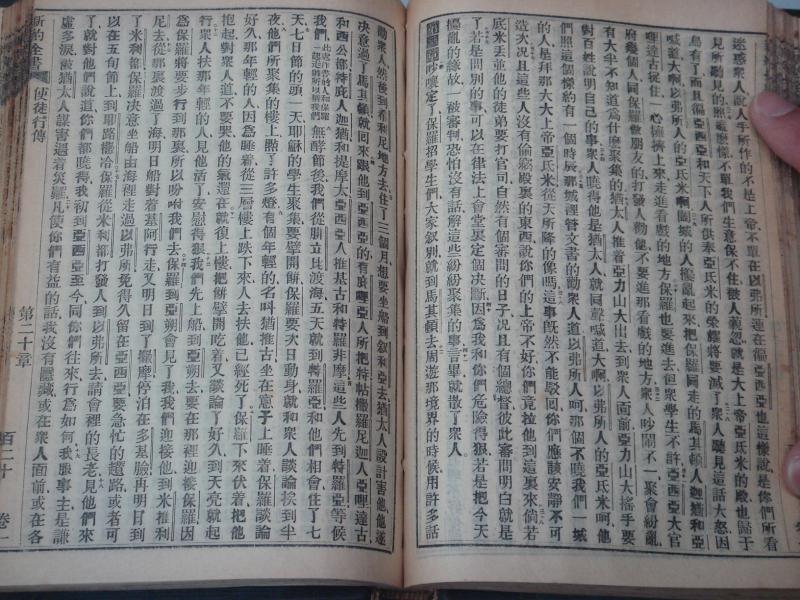 迷惑衆人說人手所作的不是上帝不單在以弗所連在徧亞西亞也這樣說是你們所看
見所聽見的照這麼樣不單我們生意保不住敢人藐忽就是大上帝亞氏米的殿也歸于
烏有了而且徧亞西亞和天下人所供奉亞氏米的榮耀將要滅了衆人聽見這話大怒因
喊道大啊以弗所人的亞氏米啊闔城的人擾亂起來把保羅同走的馬其頓人迦猶和亞
哩達古捉住一心擁擠上來走進看戲的地方保羅也要進去但衆學生不許亞西亞大官
府幾個人同保羅做朋友的打發人勸他不要進那看戲的地方衆人吵鬧不一聚會紛亂
有大半不知道爲什麽聚集的猶太人推着亞力山大出去到衆人面前亞力山大搖手要
對百姓說明自己的事衆人曉得他是猶太人就同聲喊道大啊以弗所人的亞氏米呵他
們照這個樣約有一個時辰那城裡管文書的勸衆人道以弗所人呵那個不曉我們一城
的人是拜那大大上帝亞氏米從天所降的像嗎這事旣然不能駁回你們應該安靜不可
造次况且這些人沒有偷竊殿裏的東西說你們的上帝不好你們竟拉他到這裏來倘若
底米丟並他的徒弟要打官司自然有個審問的日子况且有個總督彼此審問明白就是
了若是問別的事可以在律法上會堂裏定個决斷因爲我和你們危險得狠若是把今天
擾亂的緣故一被審判恐怕沒有話解這些紛紛聚集的事言畢就散了衆人
吵嚷定了保羅招學生們大家叙別就到馬其頓去周遊那境界的時候用許多話
勸衆人然後到希利尼地方去住了三個月想要坐船到叙利亞去猶太人設計害他他遂
决意過了馬其頓就回來跟他到亞西亞的有庇哩亞人所把特帖撒羅尼迦人亞哩達古
和西公都特庇人迦猶和提摩太亞西亞人推基古和特羅非摩這些人先到特羅亞等候
我們無酵節後我們從腓立比渡海五天就到特羅亞和他們相會住了七
天七日節的頭一天耶穌的學生聚集要擘開餅保羅要次日動身就和衆人談論挨到半
夜他們所聚集的樓上點了許多燈有個年輕的名叫猶推古坐在窻子上睡着保羅談論
好久那年輕的人因爲睡着從三層樓上跌下來人去扶他已經死了保羅下來伏着把他
抱起對衆人道不要哭他的氣還在就復上樓把餅擘開吃着又談論了好久到天亮就起
行衆人扶那年輕的人見他活了安慰得狠我們先上船到亞朔去要在那裡迎接保羅因
爲保羅將要步行到那裏所以吩咐我們去保羅到亞朔會見了我我們迎接他到米推利
尼去從那裏渡過了海明日船對着基阿行走又明日到了撒摩停泊在多基臉再明日到
了米利都保羅决意坐船由海裡走過以弗所免得久留在亞西亞要急忙的趲路或者可
以在五旬節上到耶路撒冷保羅從米利都打發人到以弗所去請會裡的長老見他們來
了就對他們說道你們都曉得我初到亞西亞至今同你們往來行爲如何我服事主是謙
虛多淚猶太人謀害遇着災難凡使你們有益的話我沒有隱藏或在衆人面前或在各
新約全書
使徒行傳
第二十章
百二十
卷一